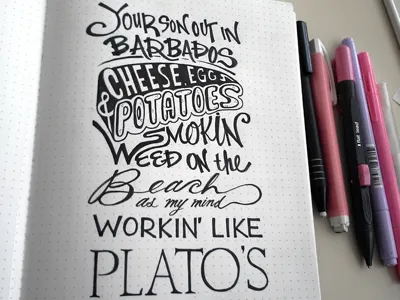 YOUR SON OUT IN
BARBADOS
CHEESE, EGGS
& POTATOES
SMOKIN
WEED ON the
Beach
as my mind
WORKIN' LIKE
PLATO'S